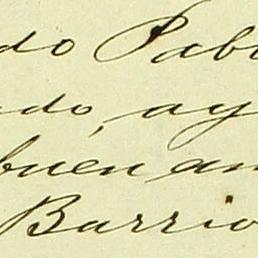 do Pab
do, ay
buen am
Barrio